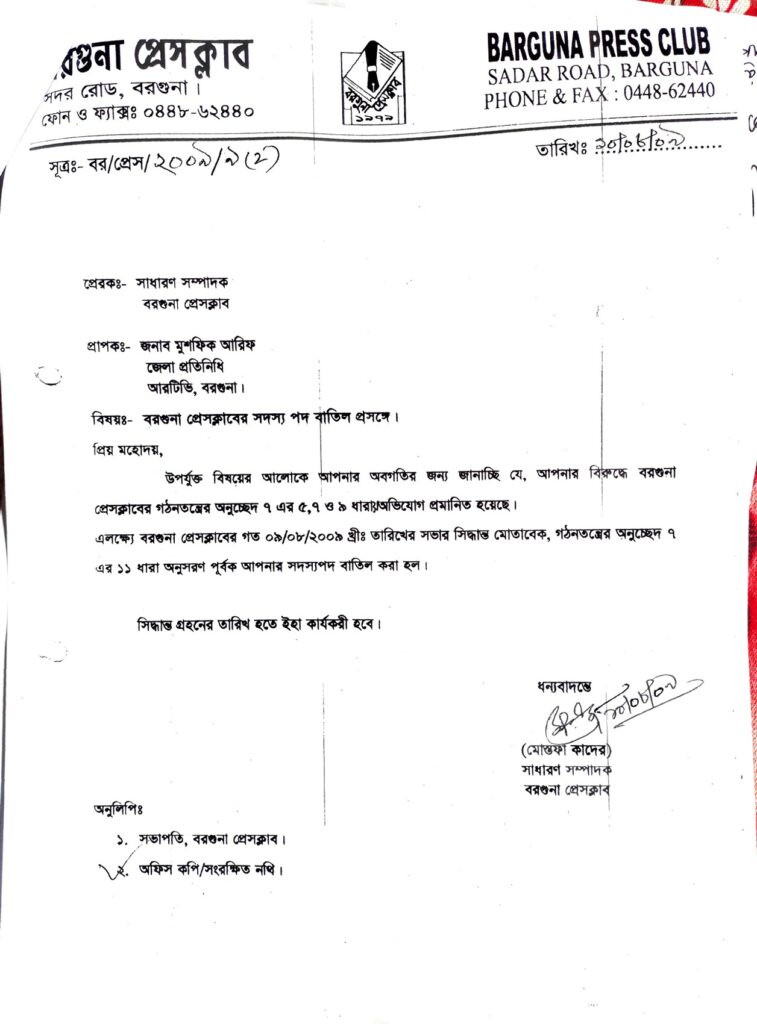 বরগুনা প্রেসক্লাব
সদর রোড, বরগুনা।
ফোন ও ফ্যাক্সঃ ০৪৪৮-৬২৪৪০
বরগুনা প্রেসক্লাব
১৯৭৯
BARGUNA PRESS CLUB
SADAR ROAD, BARGUNA
PHONE & FAX : 0448-62440
সূত্রঃ- বর/প্রেস/২০০৯/৯(২)
তারিখঃ ১০/০৮/০৯
প্রেরকঃ- সাধারণ সম্পাদক
বরগুনা প্রেসক্লাব
প্রাপকঃ- জনাব মুশফিক আরিফ
জেলা প্রতিনিধি
আরটিভি, বরগুনা।
বিষয়ঃ- বরগুনা প্রেসক্লাবের সদস্য পদ বাতিল প্রসঙ্গে।
প্রিয় মহোদয়,
উপর্যুক্ত বিষয়ের আলোকে আপনার অবগতির জন্য জানাচ্ছি যে, আপনার বিরুদ্ধে বরগুনা
প্রেসক্লাবের গঠনতন্ত্রের অনুচ্ছেদ ৭ এর ৫,৭ ও ৯ ধারা/অভিযোগ প্রমানিত হয়েছে।
এলক্ষ্যে বরগুনা প্রেসক্লাবের গত ০৯/০৮/২০০৯ খ্রীঃ তারিখের সভার সিদ্ধান্ত মোতাবেক, গঠনতন্ত্রের অনুচ্ছেদ ৭
এর ১১ ধারা অনুসরণ পূর্বক আপনার সদস্যপদ বাতিল করা হল।
সিদ্ধান্ত গ্রহনের তারিখ হতে ইহা কার্যকরী হবে।
ধন্যবাদান্তে
১০/০৮/০৯
(মোস্তফা কাদের)
সাধারণ সম্পাদক
বরগুনা প্রেসক্লাব
অনুলিপিঃ
১. সভাপতি, বরগুনা প্রেসক্লাব।
২. অফিস কপি/সংরক্ষিত নথি।